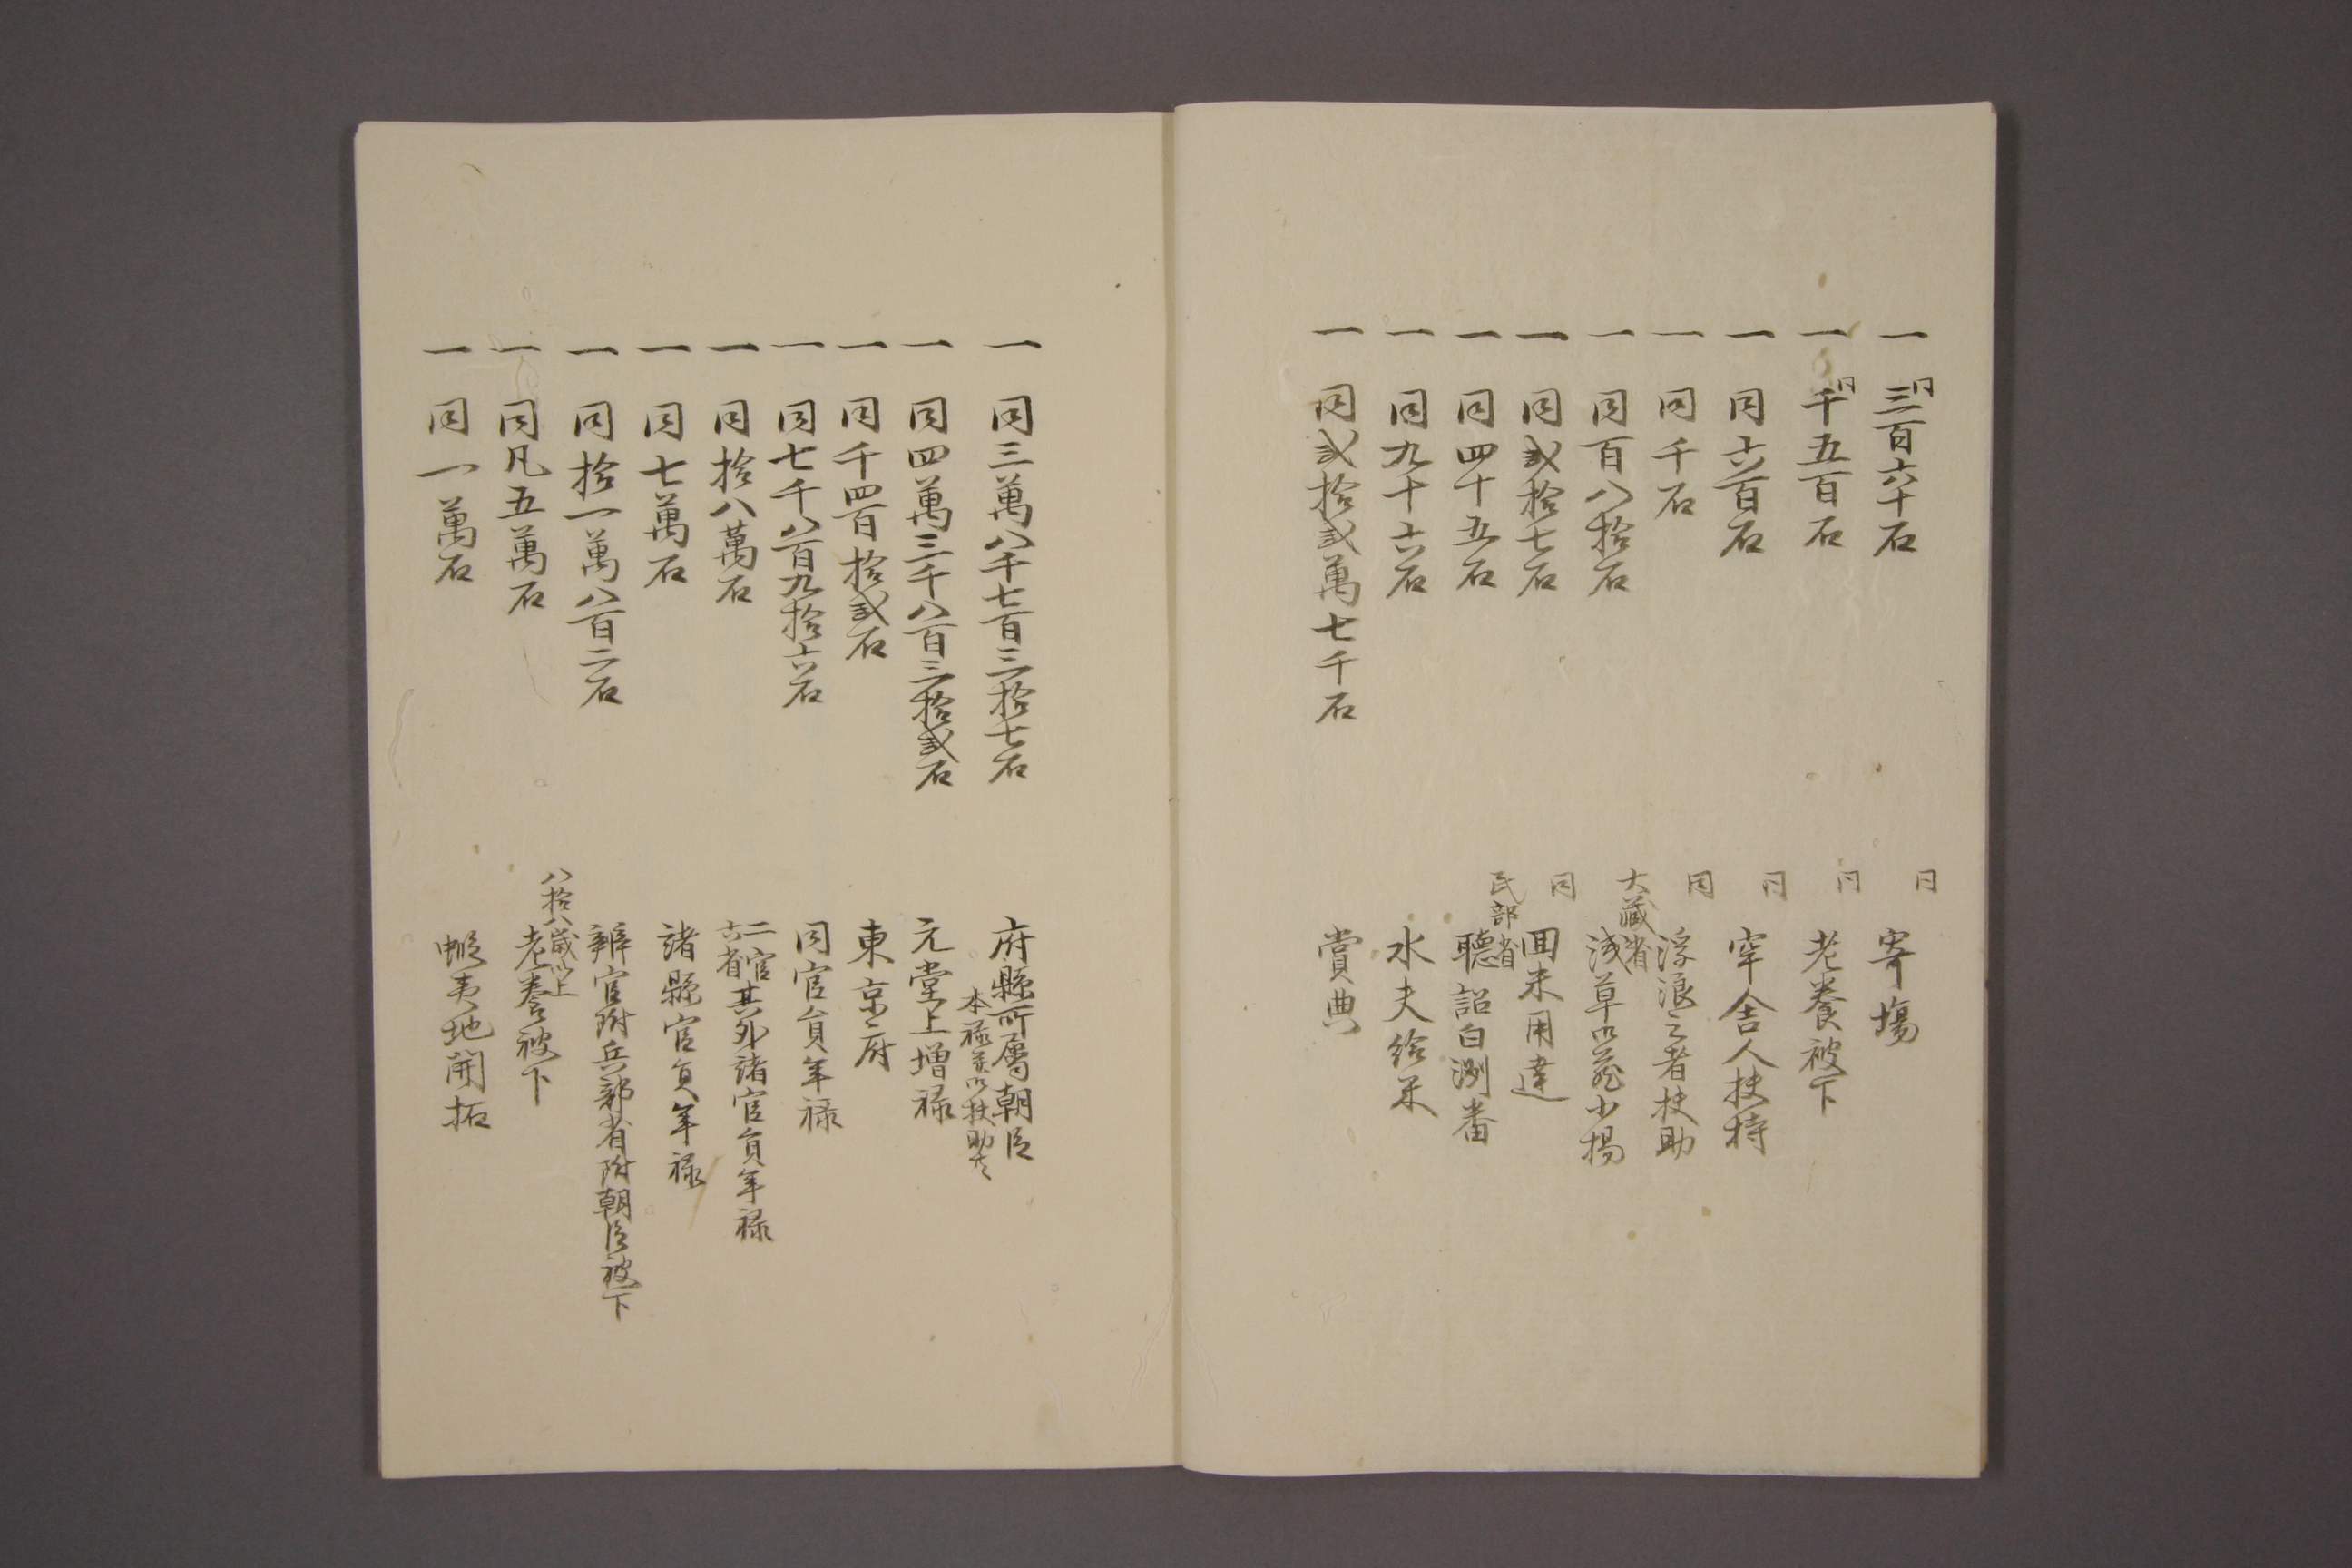 一 同三百六十石 同 寄場
一 同千五百石 同 老養被下
一 同六百石 同 牢舎人扶持
一 同千石 同 浮浪之者扶助
一 同百八拾石 大藏省 浅草御蔵小揚
一 同貳拾七石 同 囬米用達
一 同四十五石 民部省 聴詔白洲番
一 同九十六石 水夫給米
一 同貳拾貳萬七千石 賞典
一 同三萬八千七百三拾七石 府縣所属朝臣本禄並御扶助共
一 同四萬三千八百三拾貳石 元堂上増禄
一 同千四百拾貳石 東京府
一 同七千八百九拾六石 同官員年禄
一 同拾八萬石 二官六省其外諸官員年禄
一 同七萬石 諸縣官員年禄
一 同拾一萬八百二石 辨官附兵部省附朝臣被下
一 同凡五萬石 八拾八歳以上老養被下
一 同一萬石 蝦夷地開拓